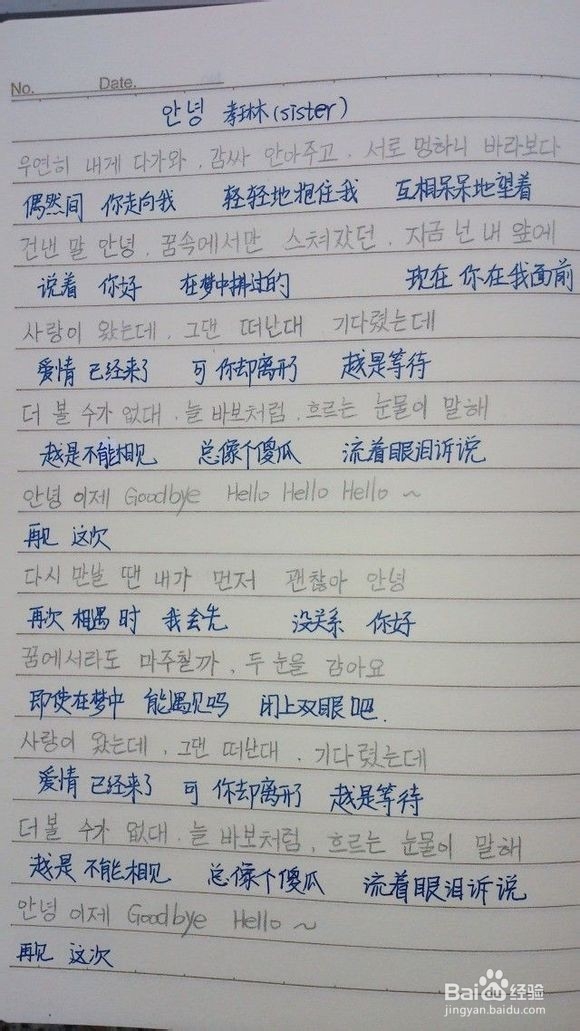 No. Date.
안녕 孝琳(sister)
우연히 내게 다가와, 감싸 안아주고, 서로 멍하니 바라보다
偶然间 你走向我 轻轻地抱住我 互相呆呆地望着
건낸 말 안녕, 꿈속에서만 스쳐갔던, 지금 넌 내 앞에
说着 你好 在梦中拂过的 现在 你在我面前
사랑이 왔는데, 그댄 떠난대 기다렸는데
爱情 已经来了 可 你却离开了 越是等待
더 볼 수가 없대, 늘 바보처럼, 흐르는 눈물이 말해
越是不能相见 总像个傻瓜 流着眼泪诉说
안녕 이제 Goodbye Hello Hello Hello ~
再见 这次
다시 만날 땐 내가 먼저 괜찮아 안녕
再次 相遇 时 我会先 没关系 你好
꿈에서라도 마주칠까, 두 눈을 감아요
即使在梦中 能遇见吗 闭上双眼吧.
사랑이 왔는데, 그댄 떠난대, 기다렸는데
爱情 已经来了 可 你却离开了 越是等待
더 볼 수가 없대, 늘 바보처럼, 흐르는 눈물이 말해
越是 不能相见 总像个傻瓜 流着眼泪诉说
안녕 이제 Goodbye Hello ~
再见 这次
Baidu 经验
jingyan.baidu.com